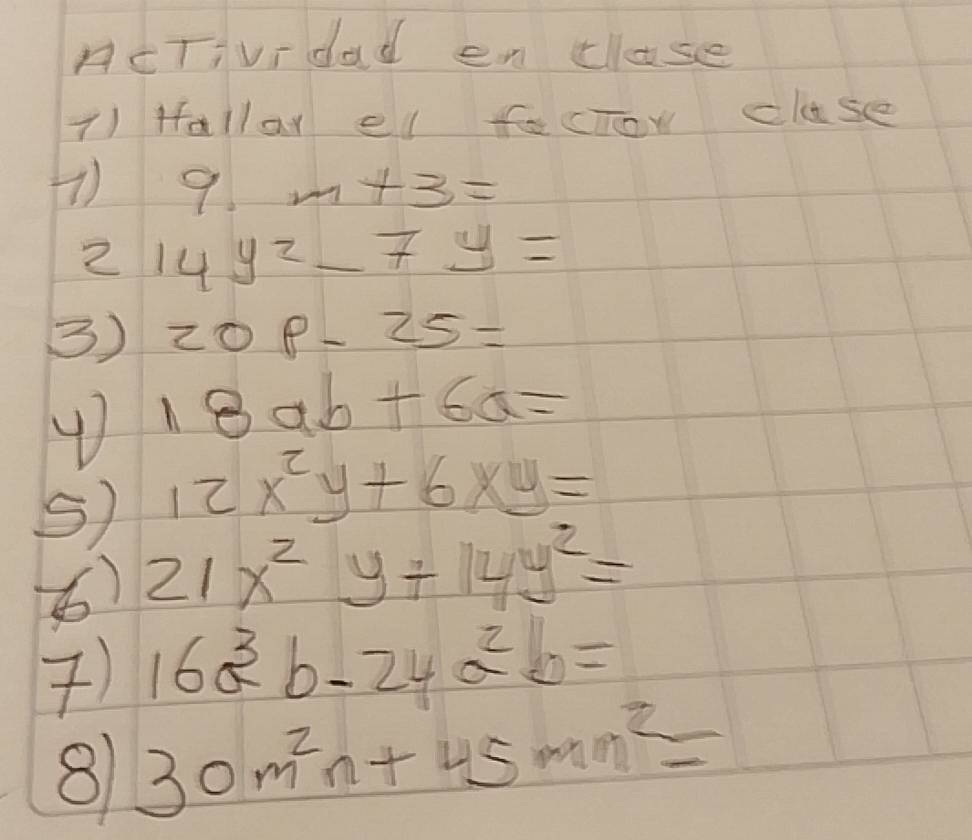 Actividad en clase
1) Hallar el factor clase
1) 9. m+3=
2 14y2-7y=
3) 20p-25=
4) 18ab+6a=
5) 12x²y+6xy=
6) 21x² y+14y²=
7) 16a³b-24a²b=
8) 30m²n+45mn²=